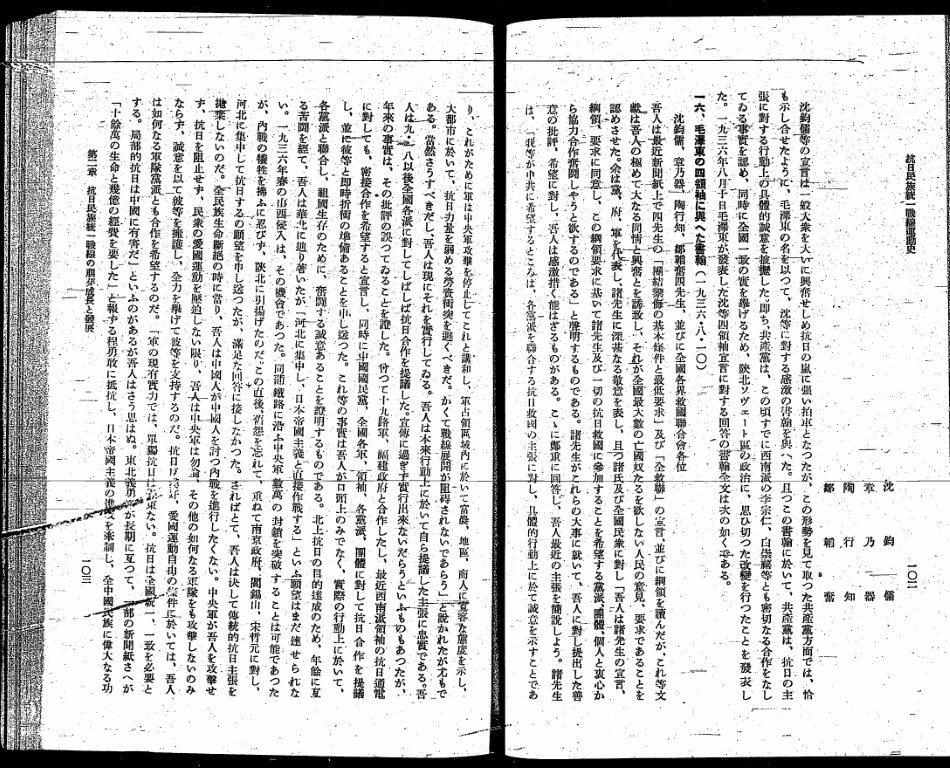 抗日民族統一戰線運動史
一〇二
沈鈞儒
章乃器
陶行知
鄒韜奮
沈鈞儒等の宣言は一般大衆をいに興奮せしめ抗日の嵐に强い拍車となつたが、この形勢を見て取つた共產黨方面では、恰
も示し合せたように、毛澤東の名を以つて、沈等に對する感激の書翰を與へた。且つこの書翰に於いて、共產黨は、抗日の主
張に對する行動上の具體的誠意を披瀝した。卽ち共產黨は、この頃すでに西南派の李宗仁、白崇禧等とも密切なる合作をなし
てゐる事實を認め、同時に全國一致の實を擧げるため、陝北ソヴェート區の政治に、思ひ切つた改變を行つたことを發表し
た。一九三六年八月十日毛澤東が發表した沈等四領袖宣言に對する回答の書翰全文は次の如くである。
一六、毛澤東の四領袖に與へた書翰(一九三六・八・一〇)
沈鈞儒、章乃器、陶行知、鄒韜奮四先生、並びに全國各界救國聯合會各位
吾人は最近新聞紙上で四先生の「團結禦侮の基本條件と最低要求」及び「全救聯」の宣言、並びに綱領を讀んだが、これ等文
獻は吾人の極めて大なる同情と興奮とを誘致し、それが全國最大數の亡國奴たるを欲しない人民の意見、要求であることを
認めさせた。余は黨、府、軍を代表し、諸先生に深甚なる敬意を表し、且つ諸氏及び全國民衆に對し「吾人は諸先生の宣言、
綱領、要求に同意し、この綱領要求に基いて諸先生及び一切の抗日救國に參加することを希望する黨派、團體、個人と衷心か
ら協力合作奮鬪しやうと欲するのである」と聲明するものである。諸先生がこれらの大事に就いて、吾人に對し提出した善
意の批評、希望に對し、吾人は感激措く能はざるものがある。こゝに鄭重に回答し、吾人最近の主張を簡說しよう。諸先生
は、「我等が中共に希望するところは、各黨派を聯合する抗日救國の主張に對し、具體的行動上に於いて誠意を示すことであ
り、これがために軍は中央軍攻擊を停止してこれと講和し、軍占領區域內に於いて富農、地區、商人に寬容な態度を示し、
大都市に於いて、抗日力量を弱める勞資衝突を避くべきだ。かくて戰線展開が阻碍されないであらう」と說かれたが尤もで
ある。當然さうすべきだし、吾人は現にそれを實行してゐる。吾人は本來行動上に於いて自ら提議した主張に忠實である。吾
人は九・一八以後全國各派に對してしばしば抗日合作を提議した。宣傳に過ぎず實行出來ないだらうといふものもあつたが、
年來の事實は、その批評の誤つてゐることを證した。曾つて十九路軍、福建政府と合作したし、最近西南派領袖の抗日通電
に對しても、密接合作を希望すると宣言し、同時に中國國民黨、全國各軍、領袖、各黨派、團體に對して抗日合作を提議
し、並に彼等と卽時折衝の準備あることを申し送つた。これ等の事實は吾人が口頭上のみでなく、實際の行動上に於いて、
各黨派と聯合し、祖國生存のために、奮鬪する誠意あることを證明するものである。北上抗日の目的達成のため、年餘に亙
る苦鬪を經て、吾人は華北に辿り著いたが「河北に集中し、日本帝國主義と直接作戰する」といふ願望はまだ達せられな
い。一九三六年春の山西侵入は、その機會であつた。同蒲鐵路に沿ふ中央軍數萬の封鎖を突破することは可能であつた
が、內戰の犧牲を拂ふに忍びず、陝北に引揚げたのだ。この直後、舊怨を忘れて、重ねて南京政府、閻錫山、宋哲元に對し、
河北に集中して抗日するの願望を申し送つたが、滿足な回答に接しなかつた。さればとて、吾人は決して傳統的抗日主張を
拋棄しないのだ。全民族生命斷絕の時に當り、吾人は中國人が中國人を討つ內戰を進行したくない。中央軍が吾人を攻擊せ
ず、抗日を阻止せず、民衆の愛國運動を壓迫しない限り、吾人は中央軍は勿論、その他の如何なる軍隊をも攻擊しないのみ
ならず、誠意を以て彼等を擁護し、全力を擧げて彼等を支持するのだ。抗日反滿、愛國運動自由の條件に於いては、吾人
は如何なる軍隊黨派とも合作を希望するのだ。「軍の現有實力では、單獨抗日は出來ない。抗日は全國統一、一致を必要と
する。局部的抗日は中國に有害だ」といふのがあるが吾人はさう思はぬ。東北義勇が長期に亙つて、一部の新聞紙さへが
「十餘萬の生命と幾億の經費を要した」と報ずる程勇敢に抵抗し、日本帝國主義の進攻を牽制し、全中國民族に偉大なる功
第二章 抗日民族統一戰線の萠芽成長と發展
一〇三